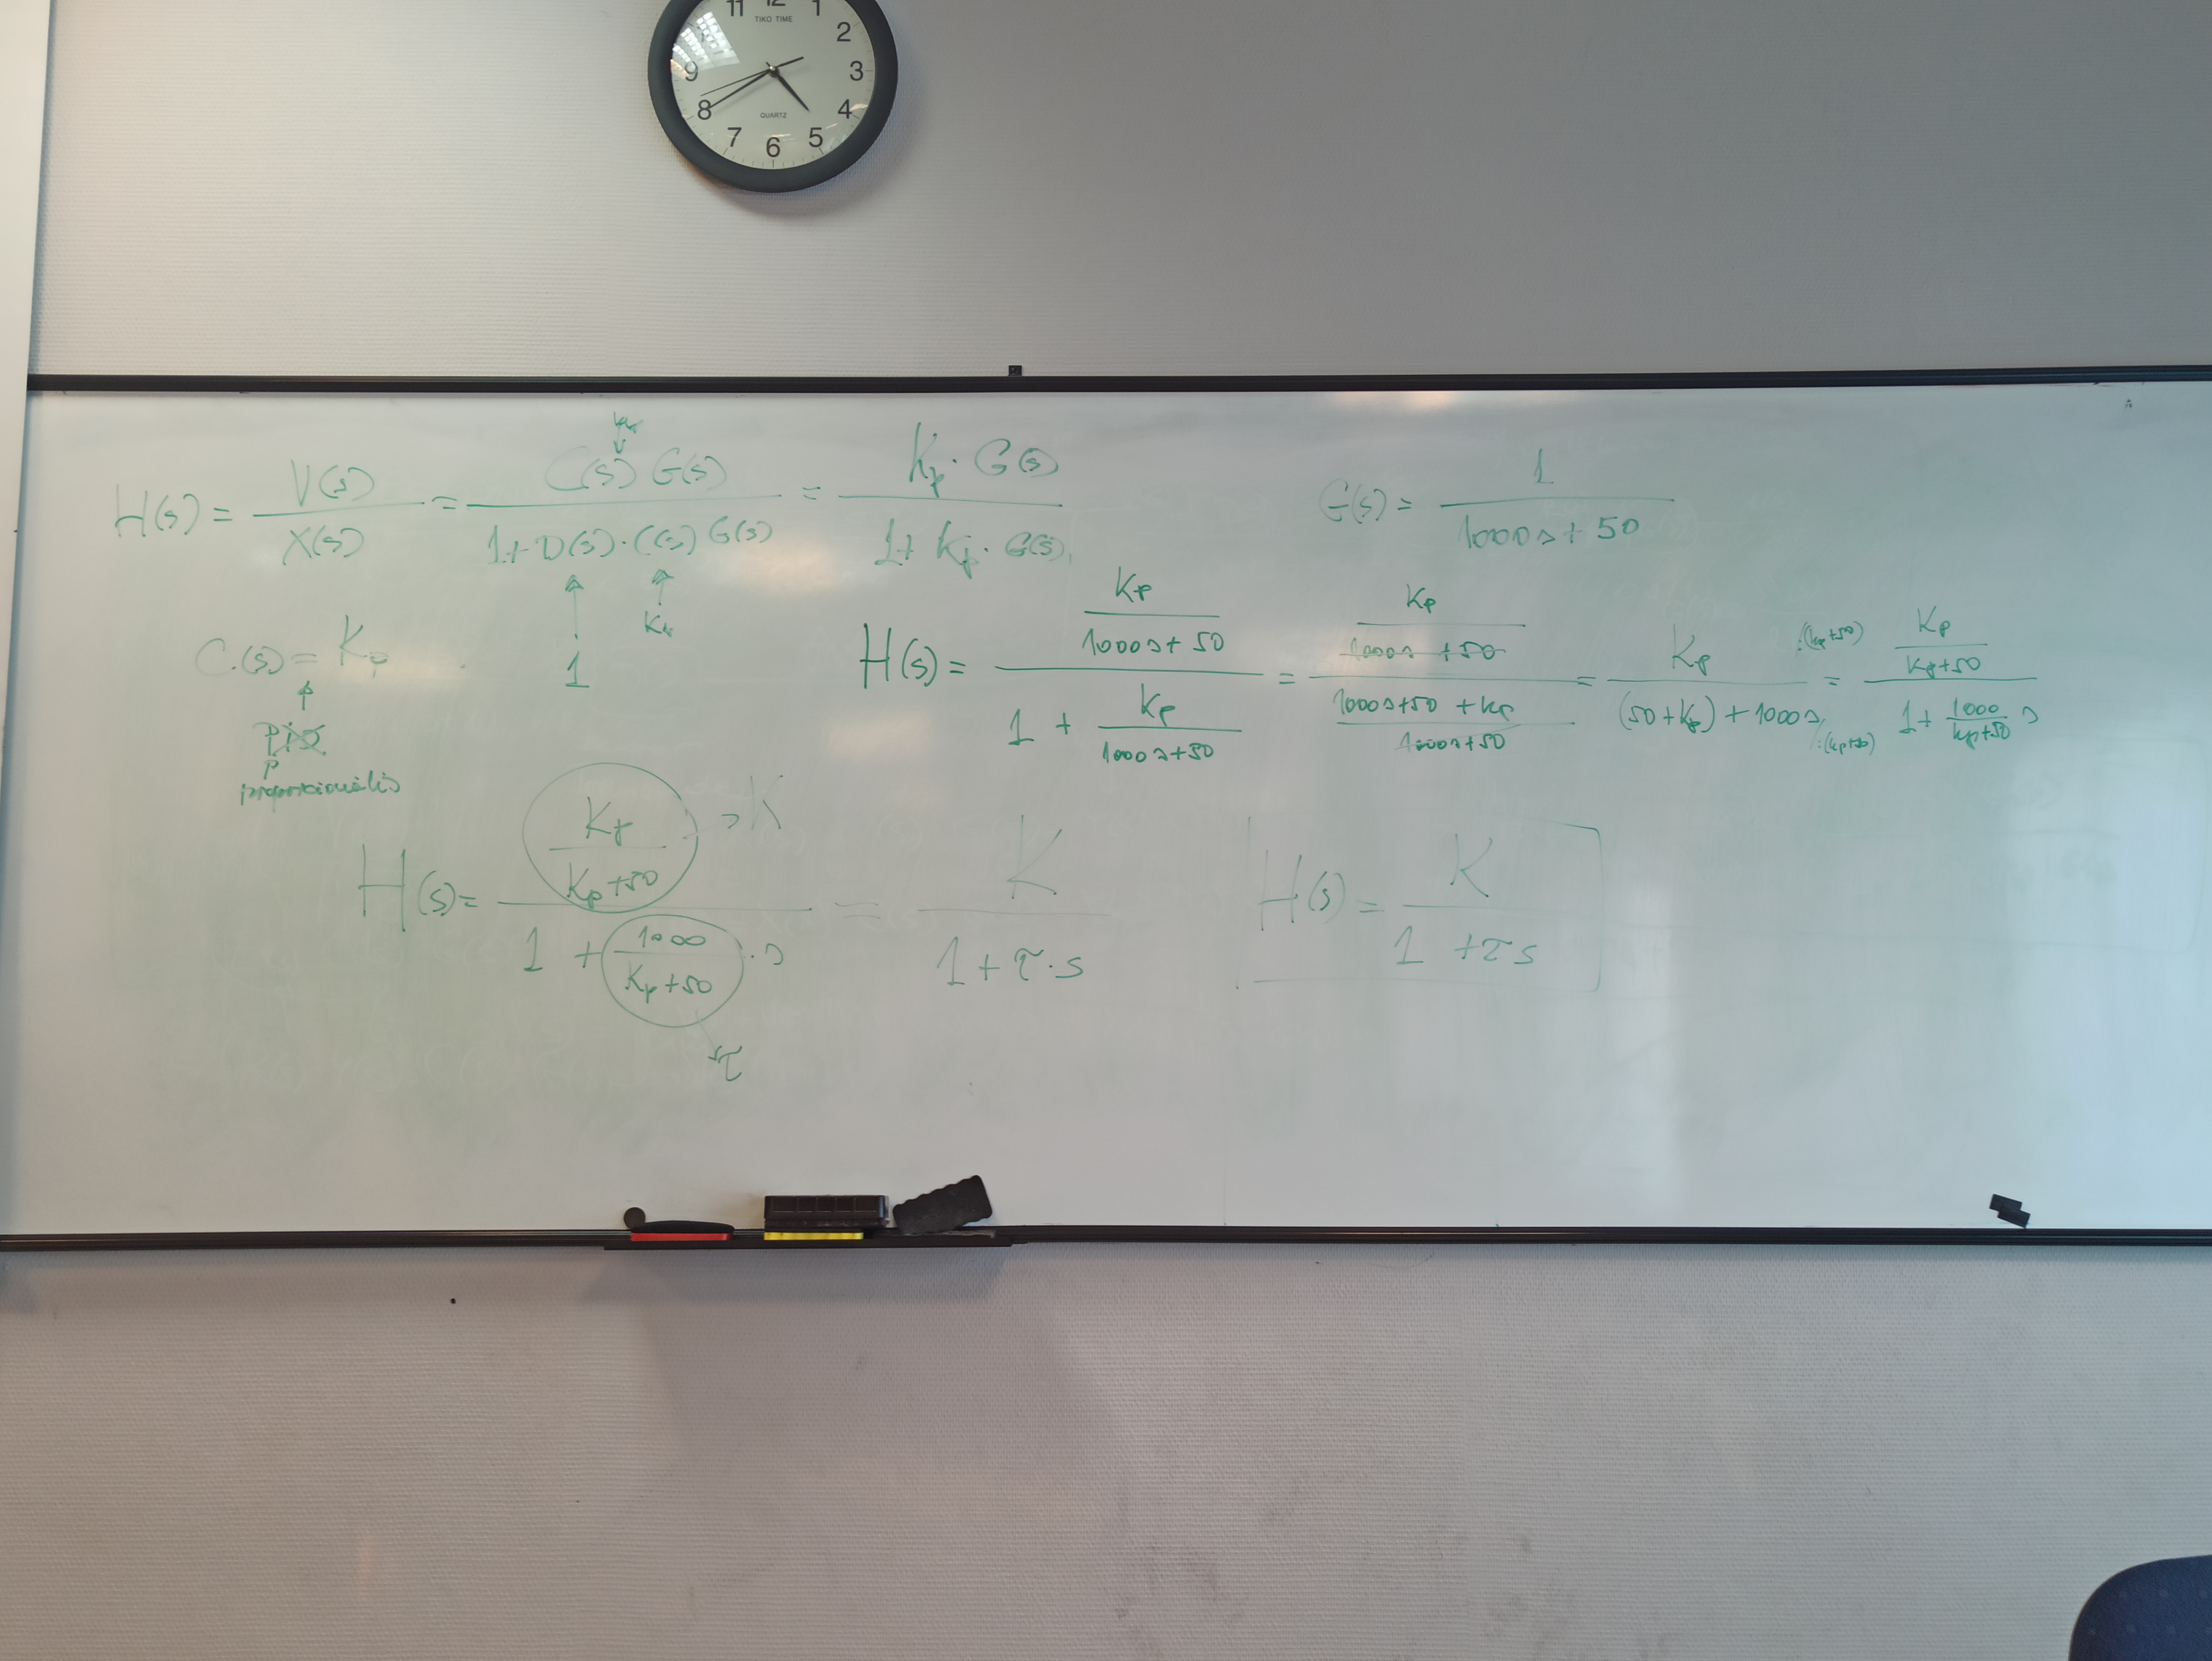 11 12 1
TIKO TIME
2
9 3
QUARTZ
8 4
7 6 5
H(s) = V(s) / X(s) = C(s) G(s) / 1 + D(s) · C(s) G(s) = Kp · G(s) / 1 + Kp · G(s)
G(s) = 1 / 1000s + 50
1
C(s) = Kp
PID
P
proporcionális
H(s) = (Kp / 1000s + 50) / (1 + Kp / 1000s + 50) = (Kp / 1000s + 50) / (1000s + 50 + Kp / 1000s + 50) = Kp / (50 + Kp) + 1000s = (Kp / Kp + 50) / (1 + 1000 / Kp + 50 s)
:(Kp+50)
:(Kp+50)
H(s) = (Kp / Kp + 50) / (1 + 1000 / Kp + 50 · s) = K / 1 + τ · s
K
τ
H(s) = K / 1 + τs